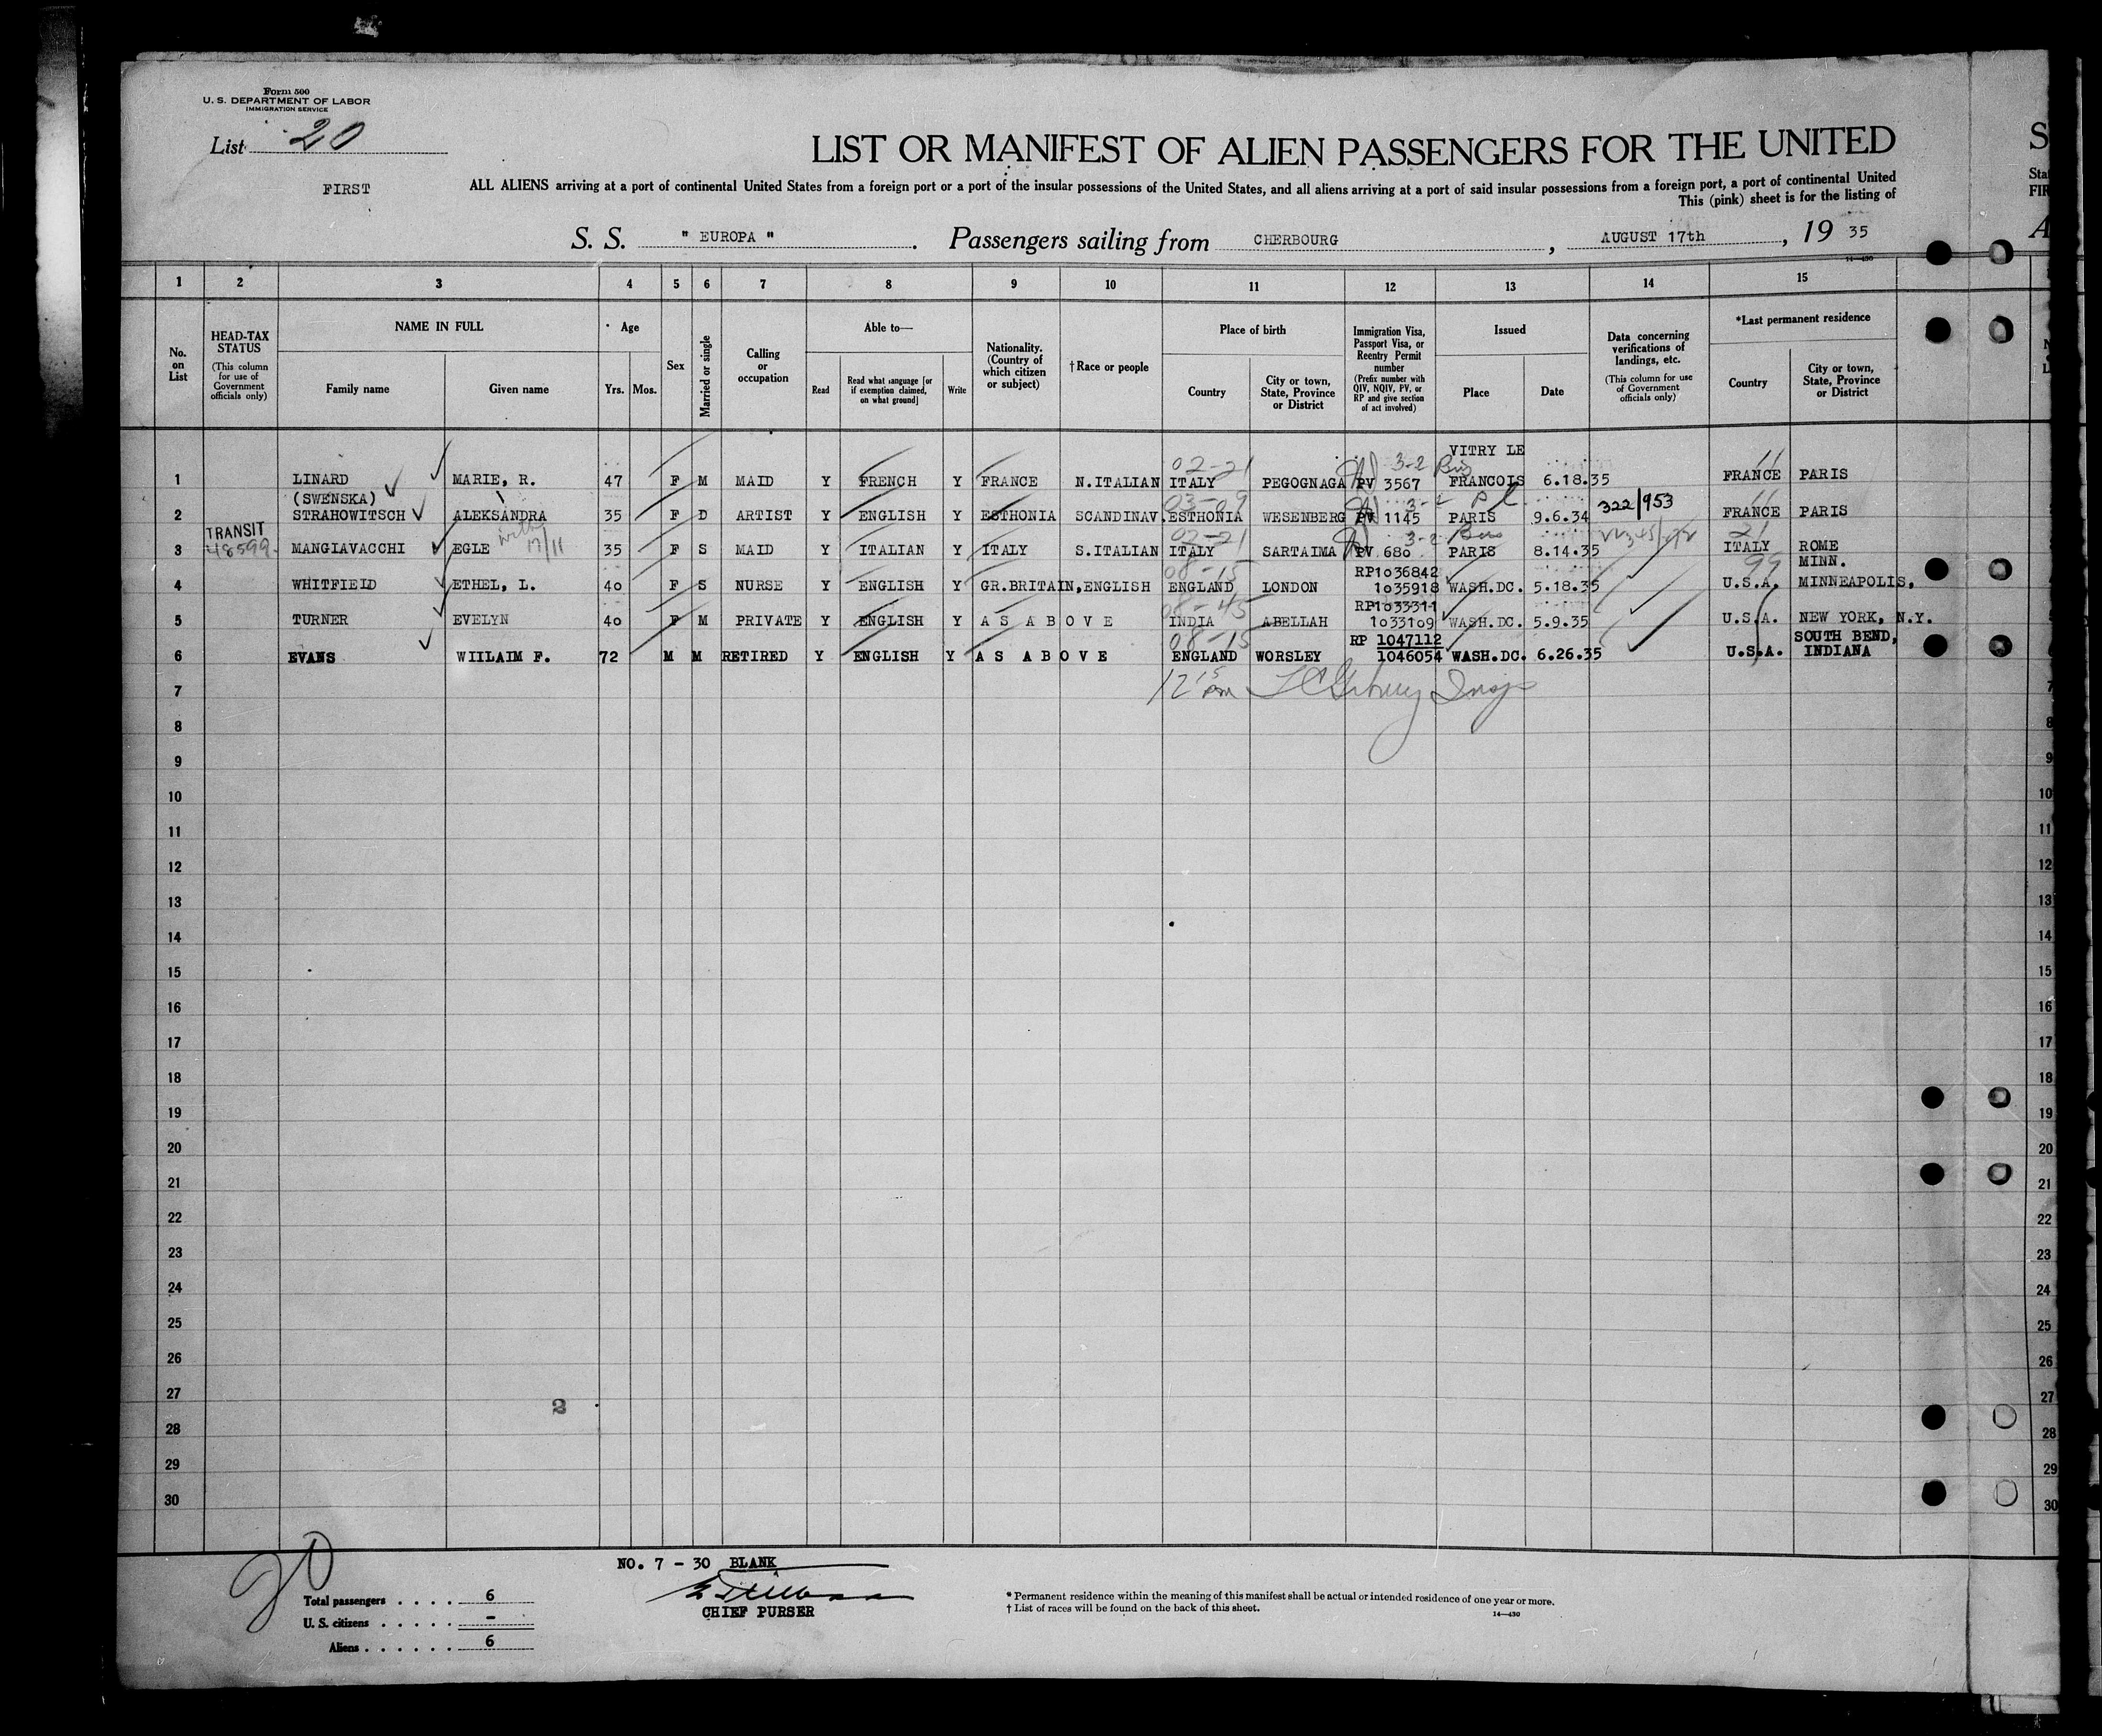 Form 500
U. S. DEPARTMENT OF LABOR
IMMIGRATION SERVICE
List 20
LIST OR MANIFEST OF ALIEN PASSENGERS FOR THE UNITED
S
FIRST
ALL ALIENS arriving at a port of continental United States from a foreign port or a port of the insular possessions of the United States, and all aliens arriving at a port of said insular possessions from a foreign port, a port of continental United
Stat
This (pink) sheet is for the listing of
FIR
S. S. " EUROPA " . Passengers sailing from CHERBOURG , AUGUST 17th , 19 35
A
14—430
1 2 3 4 5 6 7 8 9 10 11 12 13 14 15
No. on List
HEAD-TAX STATUS
(This column for use of Government officials only)
NAME IN FULL
Family name
Given name
Age
Yrs.
Mos.
Sex
Married or single
Calling or occupation
Able to—
Read
Read what language [or if exemption claimed, on what ground]
Write
Nationality. (Country of which citizen or subject)
†Race or people
Place of birth
Country
City or town, State, Province or District
Immigration Visa, Passport Visa, or Reentry Permit number
(Prefix number with QIV, NQIV, PV, or RP and give section of act involved)
Issued
Place
Date
Data concerning verifications of landings, etc.
(This column for use of Government officials only)
*Last permanent residence
Country
City or town, State, Province or District
VITRY LE
02-21 3-2 11
1 LINARD MARIE, R. 47 F M MAID Y FRENCH Y FRANCE N.ITALIAN ITALY PEGOGNAGA PV 3567 FRANCOIS 6.18.35 FRANCE PARIS
(SWENSKA) 03-09 11
2 STRAHOWITSCH ALEKSANDRA 35 F D ARTIST Y ENGLISH Y ESTHONIA SCANDINAV. ESTHONIA WESENBERG PV 1145 PARIS 9.6.34 322/953 FRANCE PARIS
TRANSIT 02-21 3-2 21
3 48599 MANGIAVACCHI EGLE 17/11 35 F S MAID Y ITALIAN Y ITALY S.ITALIAN ITALY SARTAIMA PV 680 PARIS 8.14.35 ITALY ROME
08-15 RP1036842 99 MINN.
4 WHITFIELD ETHEL, L. 40 F S NURSE Y ENGLISH Y GR.BRITAIN,ENGLISH ENGLAND LONDON 1035918 WASH.DC. 5.18.35 U.S.A. MINNEAPOLIS,
08-45 RP1033311
5 TURNER EVELYN 40 F M PRIVATE Y ENGLISH Y AS ABOVE INDIA ABELLAH 1033109 WASH.DC. 5.9.35 U.S.A. NEW YORK, N.Y.
08-15 RP 1047112 SOUTH BEND,
6 EVANS WIILAIM F. 72 M M RETIRED Y ENGLISH Y AS ABOVE ENGLAND WORSLEY 1046054 WASH.DC. 6.26.35 U.S.A. INDIANA
7 12 15 pm Insp 7
8 8
9 9
10 10
11 11
12 12
13 13
14 14
15 15
16 16
17 17
18 18
19 19
20 20
21 21
22 22
23 23
24 24
25 25
26 26
27 27
2
28 28
29 29
30 30
20
NO. 7 - 30 BLANK
Total passengers . . . . 6
U. S. citizens . . . . . -
Aliens . . . . . . 6
CHIEF PURSER
* Permanent residence within the meaning of this manifest shall be actual or intended residence of one year or more.
† List of races will be found on the back of this sheet.
14—430